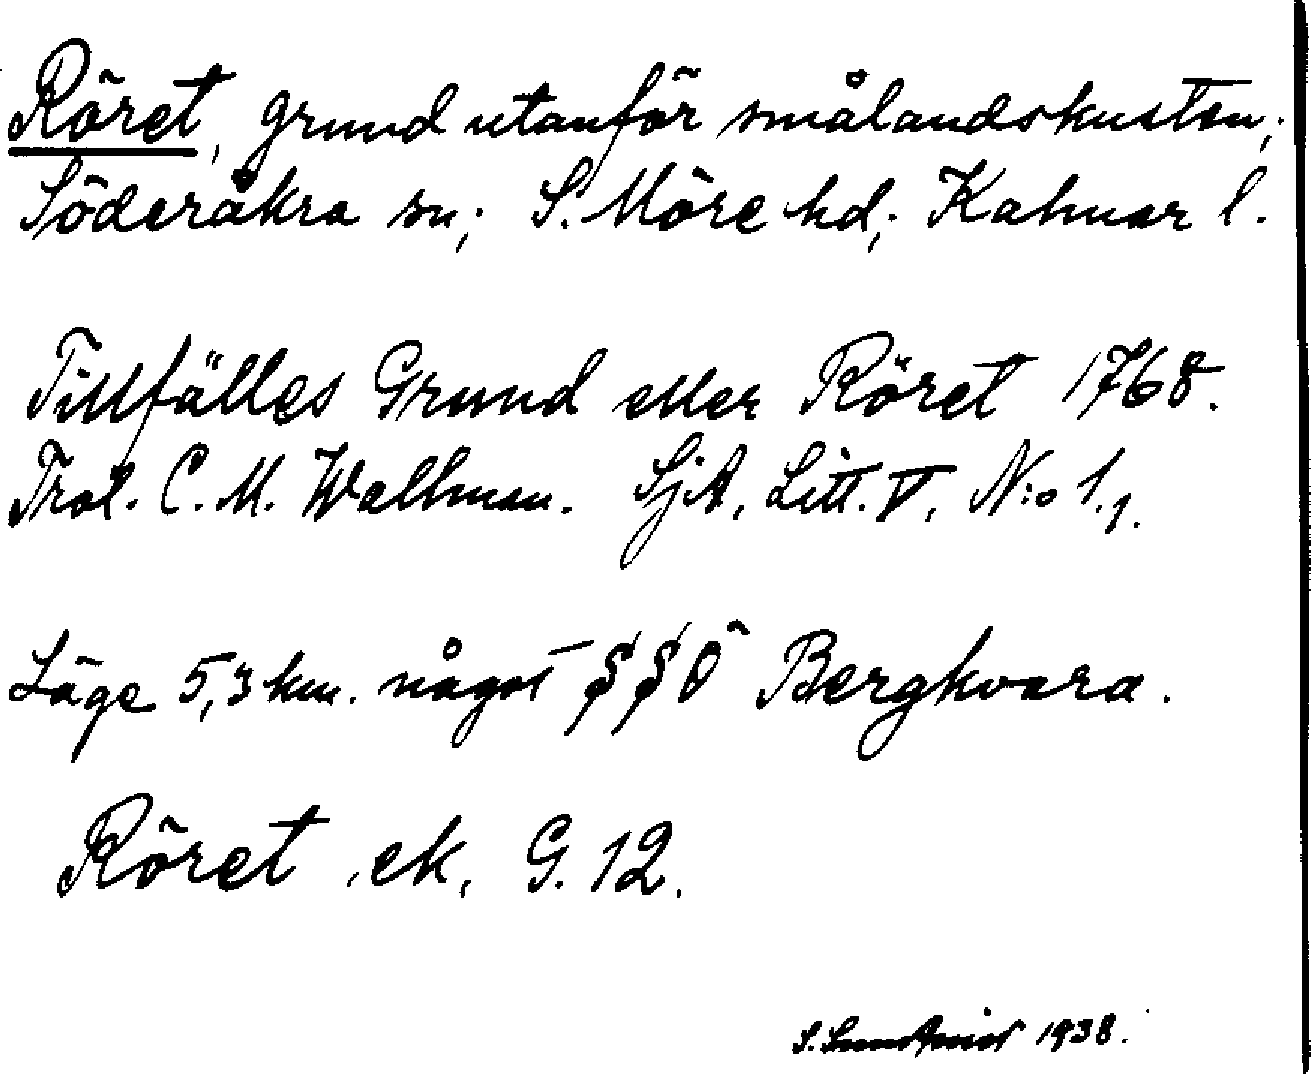 Röret, grund utanför smålandskusten;
Söderåkra sn; S. Möre hd; Kalmar l.
Tillfälles Grund eller Röret 1768.
Trol. C. M. Wallman. SjA, Litt. V, N:o 1,1.
Läge 5,3 km. något SSÖ Bergkvara.
Röret, ek, G. 12.
S. 1938.